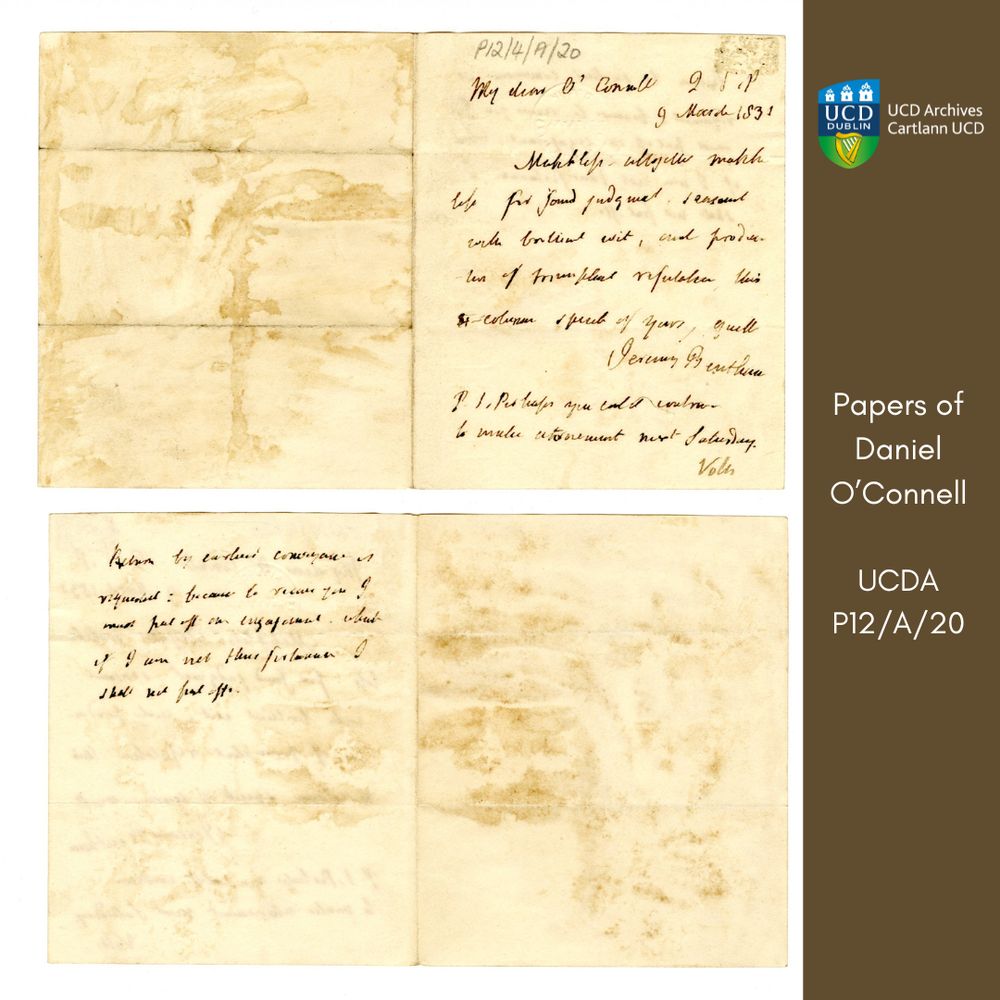 P12/4/A/20
My dear O' Connell 2 S. P
9 March 1831
Matchless altogether match
less for sound judgment. seasoned
with brilliant wit, and produc-
-tive of triumphant refutation, this
column speech of yours, quoth
Jeremy Bentham
P. S. Perhaps you could contrive
to make atonement next Saturday.
Return by earliest conveyance is
requested: because to receive you I
must put off an engagement. which
if I am not thus fortunate I
shall not put off.
UCD
DUBLIN
UCD Archives
Cartlann UCD
Papers of
Daniel
O'Connell
UCDA
P12/A/20